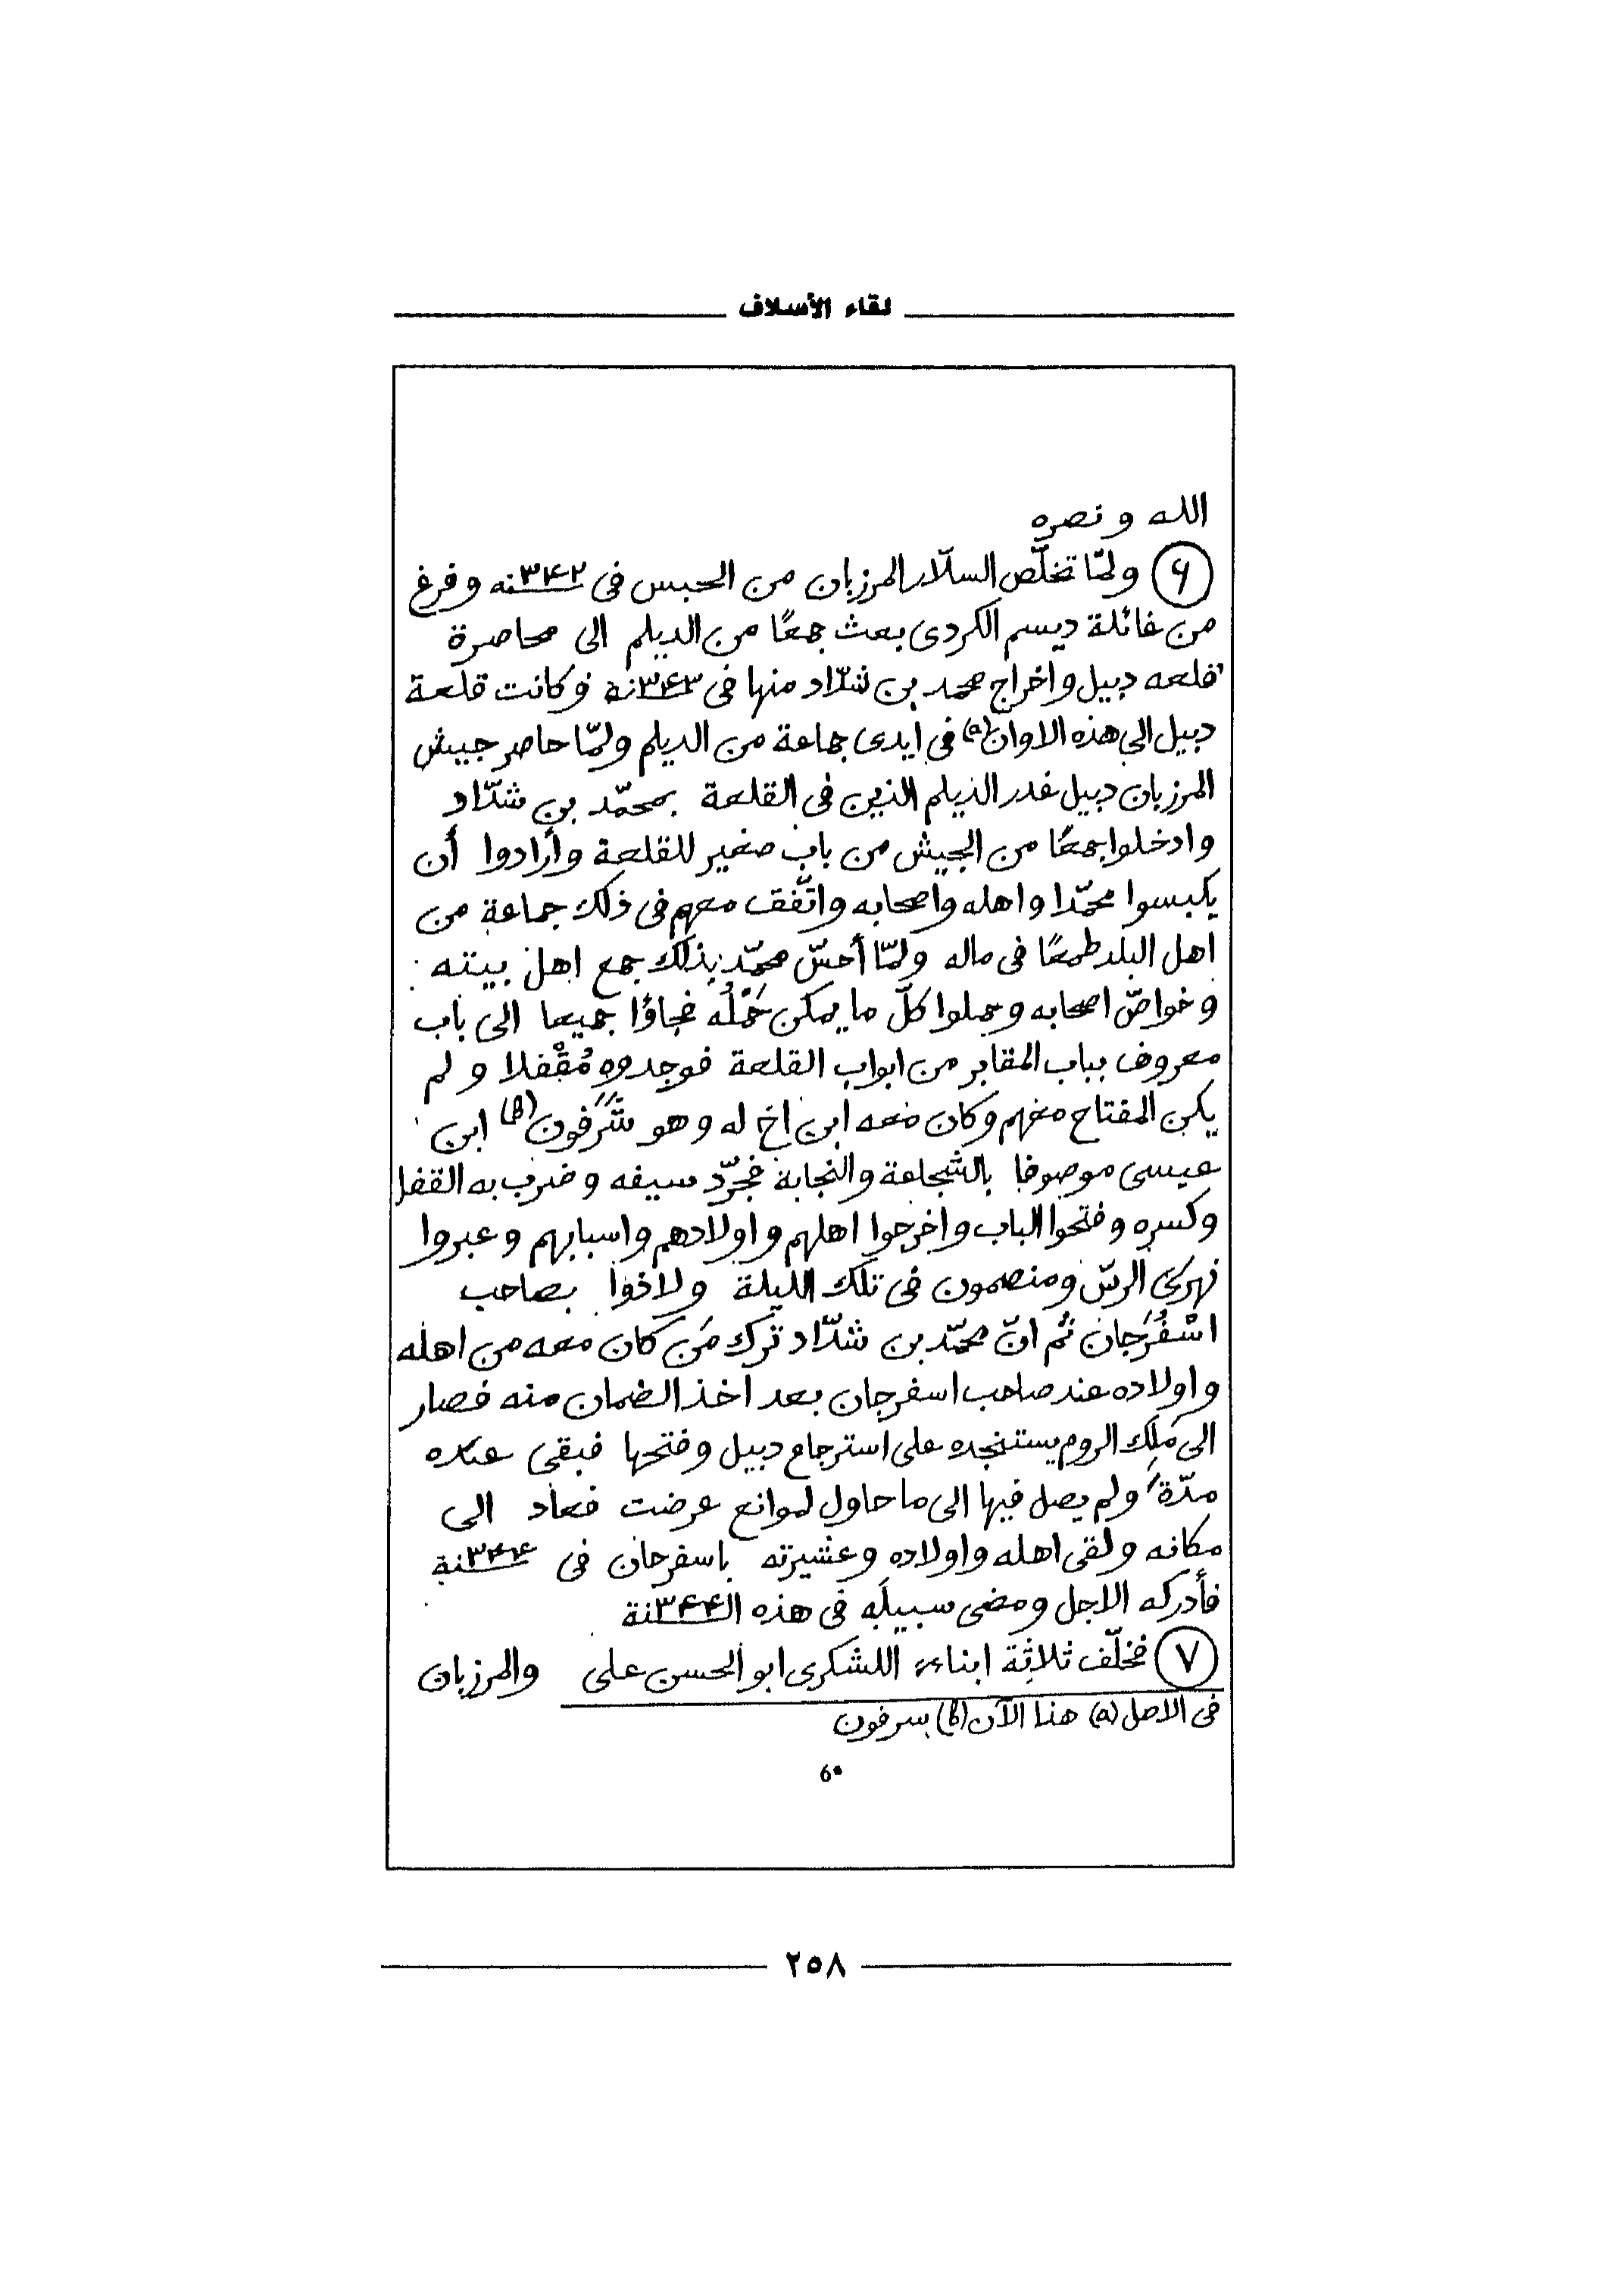 لقاء الأسلاف
الله و نصره
۶ ولمّا تخلّص السلّار المرزبان من الحبس فى سنه ۳۴۲ وفرغ
من غائلة ديسم الكردى بعث جمعًا من الديلم الى محاصرة
قلعه دبيل واخراج محمد بن شدّاد منها فى سنة ۳۴۳ وكانت قلعة
دبيل الى هذه الاوان(a) فى ايدى جماعة من الديلم ولمّا حاصر جيش
المرزبان دبيل غدر الديلم الذين فى القلعة بمحمّد بن شدّاد
وادخلوا جمعًا من الجيش من باب صغير للقلعة وأرادوا أن
يكبسوا محمّدا واهله واصحابه واتّفق معهم فى ذلك جماعة من
اهل البلد طمعًا فى ماله ولمّا أحسّ محمّد بذلك جمع اهل بيته
وخواصّ اصحابه وحملوا كلّ ما يمكن حَمْلُه فجاؤا جميعا الى باب
معروف بباب المقابر من ابواب القلعة فوجدوه مُقْفلا و لم
يكن المفتاح معهم وكان معه ابن اخ له وهو شَرَفون(b) ابن
عيسى موصوفا بالشجاعة والنجابة فجرّد سيفه وضرب به القفل
وكسره وفتحوا الباب واخرجوا اهلهم واولادهم واسبابهم وعبروا
نهرى الرسّ ومنصمون فى تلك الليلة ولاذوا بصاحب
اسْفُرَجان ثم انّ محمّد بن شدّاد ترك مَن كان معه من اهله
واولاده عند صاحب اسفرجان بعد اخذ الضمان منه فصار
الى مَلِك الروم يستنجده على استرجاع دبيل وفتحها فبقى عنده
مدّة ولم يصل فيها الى ما حاول لموانع عرضت فعاد الى
مكانه ولقى اهله واولاده وعشيرته باسفرجان فى سنة ۳۴۴
فأدركه الاجل ومضى سبيلَه فى هذه السنة ۳۴۴
۷ فخلّف ثلاثة ابناء اللشكرى ابو الحسن على والمرزبان
فى الاصل (a) هذا الآن (b) سرفون
6•
٢٥٨